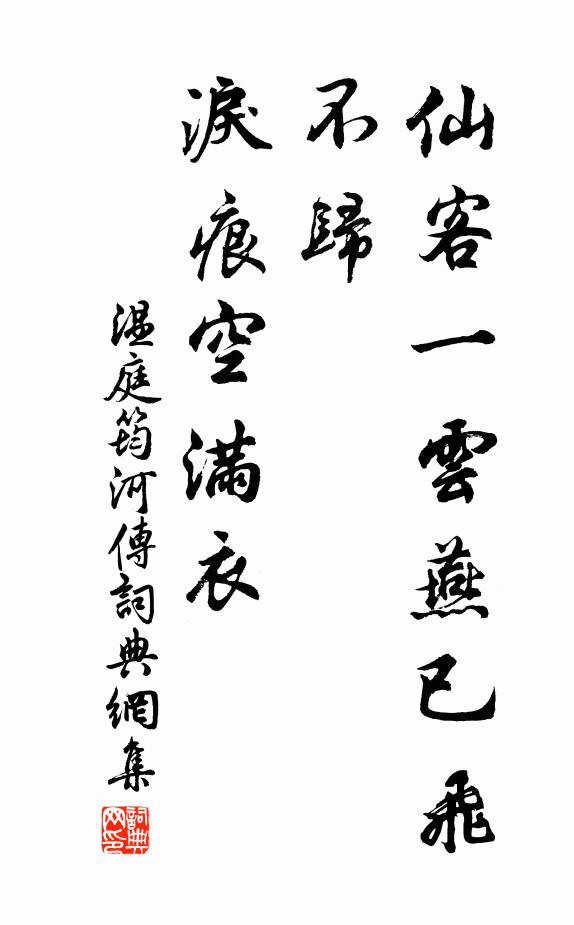 仙客一雲燕已飛
不歸
淚痕空滿衣
温庭筠河傳詞典網集
詞典
网印